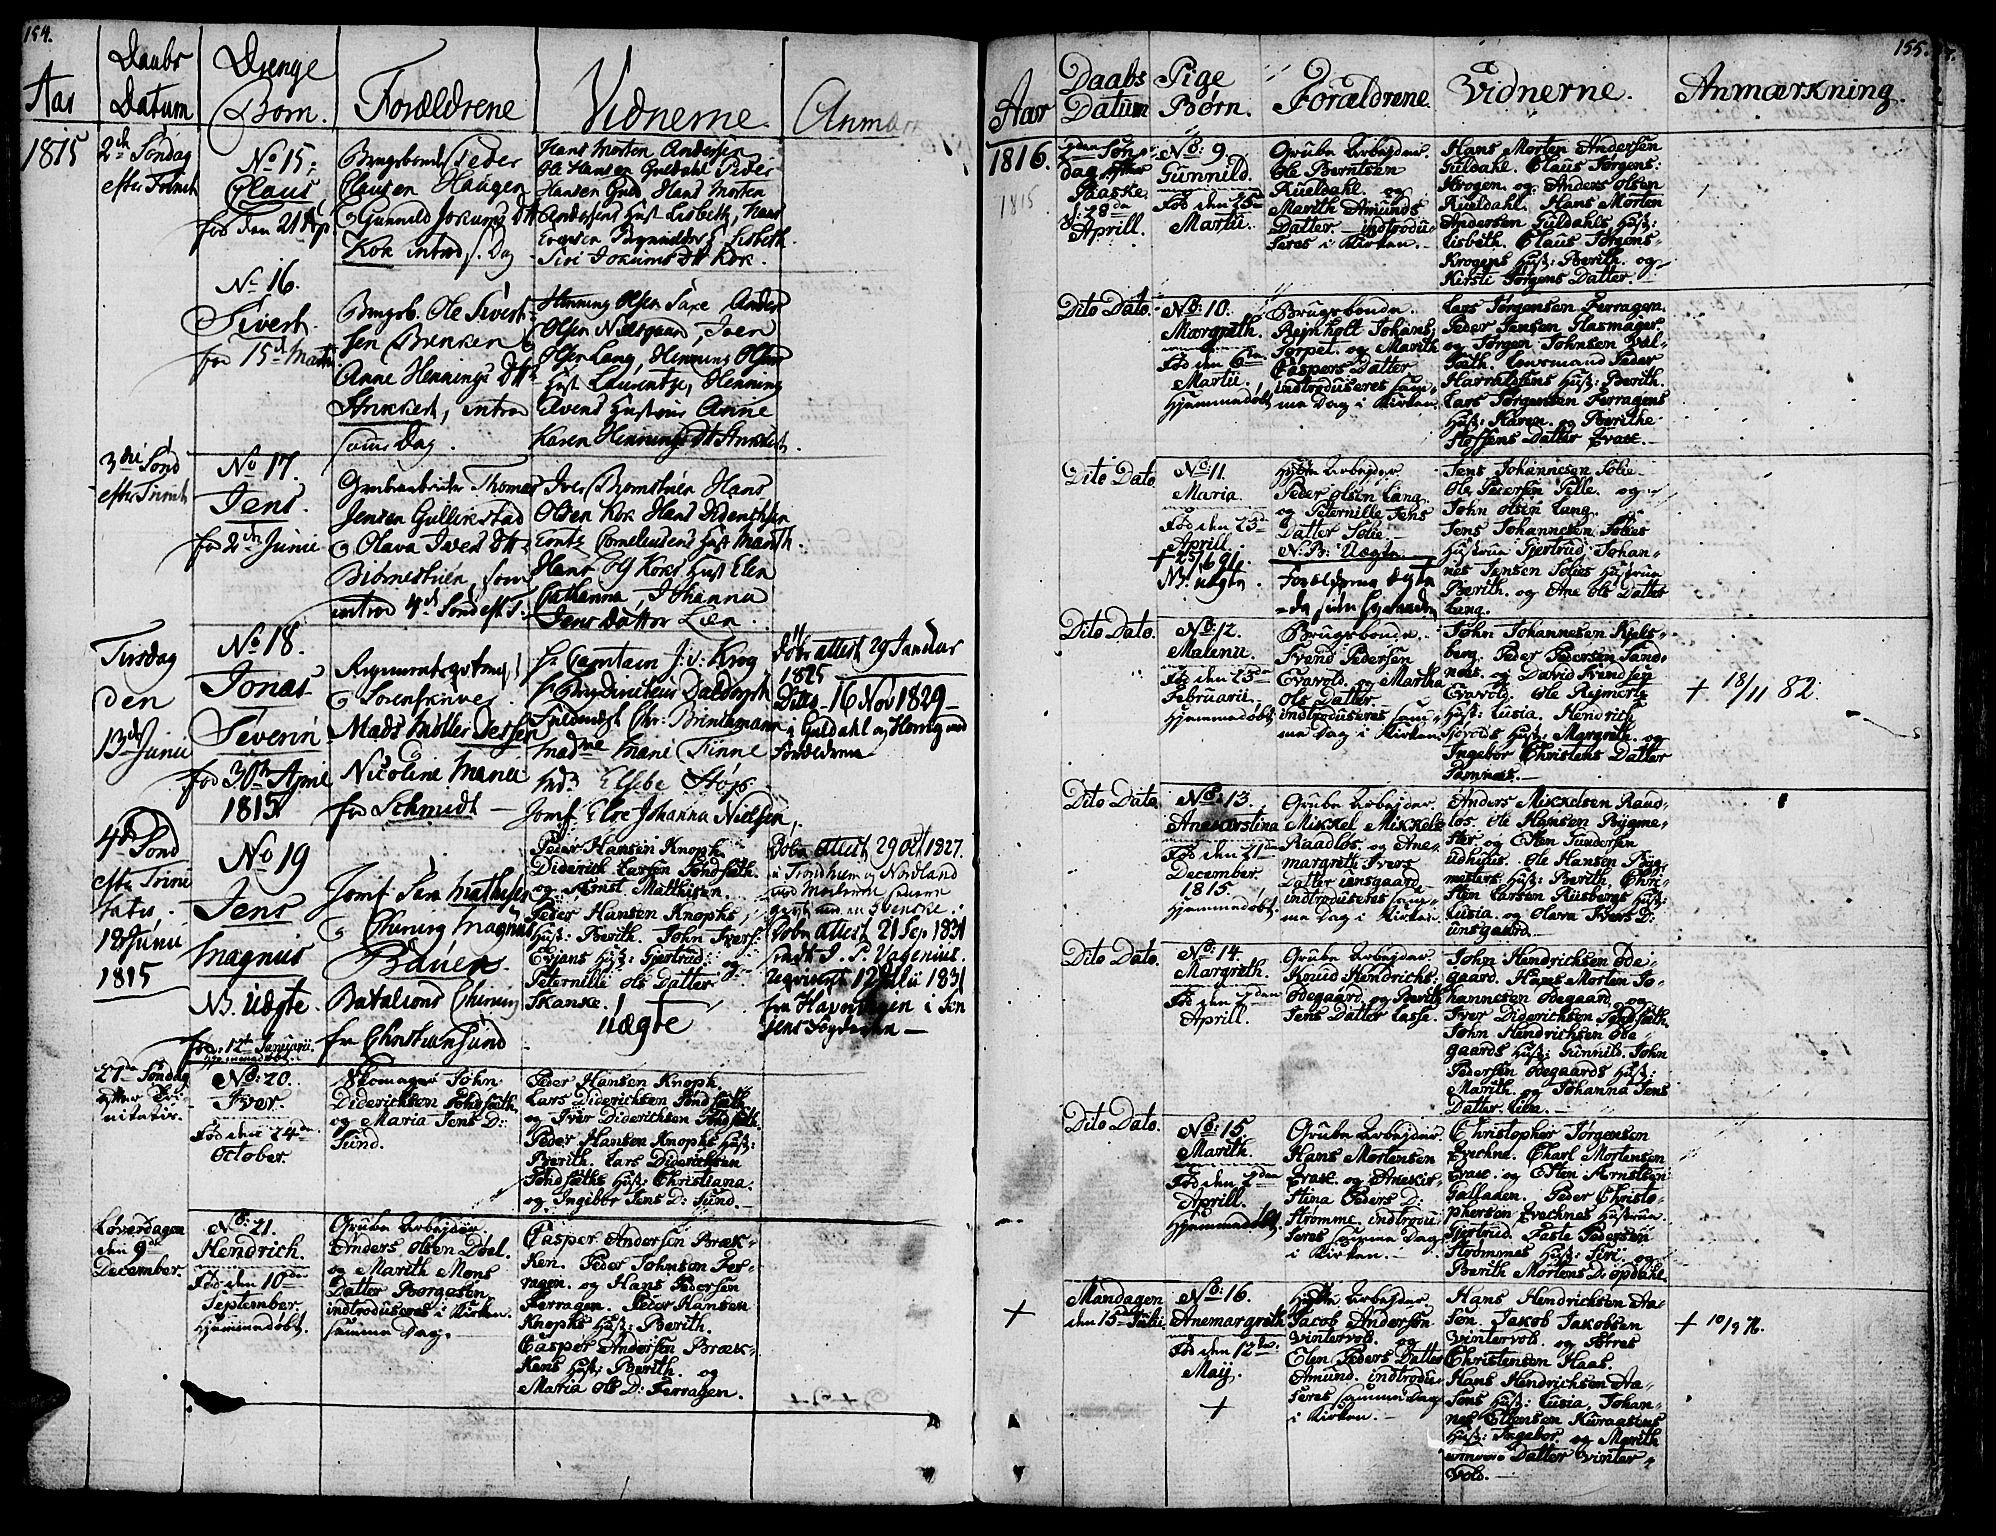 154.
Aar
Daabs
Datum
Drenge
Børn.
Forældrene
Vidnerne.
Anmær
1815
2den Søndag
efter Trinit
No 15:
Claus
fød den 21
Brugsbonde Peder
Clausen Haugen
og Gunnild Jokums Dtr
Kok introd s. Dag
Hans Morten Andersen
Ole Hansen Guldahl Peder
Hansen Guld Hans Morten
Andersens Hust Lisbeth, Hans
Lisbeth
Siri Jokums Dtr Kok.
No 16.
Sivert.
fød 15de Martii
Brugsb. Ole Sivert-
sen Brinken
Anne Hennings Dtr
Strikkert, introd
samme Dag.
Henning Olsen Saxe Ander
Olsen Nilsgaard, Iver
Olsen Lang, Henning Olsen
Hust Laurentze, Henning
Avens Hustrue Anne
Karen Hennings Dtr Strikkert
3die Sønd
efter Trinit
No 17.
Jens.
fød 2den Junii
Grubearbeider Thomas
Jensen Gullikstad
og Olava Ivers Dtr
Biørnestuen, som
introd 4de Sønd eft T.
Iver Biørnstuen Hans
Olsen Kok Hans Didrichsen
Lontz Corneliusens Hust Marith.
Hans Ols Koks Hust Elen
Cathrina, Johanna
Jens Datter Lien.
Tirsdag
den
13de Junii
No 18.
Jonas
Severin
fød 30th April
1815
Regimentsqvarteer
og Sorenskriver
Mads Møller Jessen
Nicoline Maria
fød Schmidt
Hr Captain J. v. Krog
Hr Bergdirecteur Daldorph
Chr. Brinchmann
Madme Marie Finne
Md. Elsebe Støp
Jomf. Else Johanna Nielsen,
Døbe attest 29 Januar
1825
Dito - 16 Nov 1829 -
i Guldahl og Horrig ved
Forældrene
4de Sønd
efter Trini
tatis,
18 Junii
1815
No 19
Jens
Magnus
NB. Uægte.
fød 12te Januarii.
Hjemmedøbt.
Jomf Sara Mathisen
og Chirurg Magnus
Bauer
Batalions Chirurg
fra Christiansund
Peder Hansen Knoph.
Diderich Larsen Tondsæth.
og Ernst Matthisen.
Peder Hansen Knophs
Huß: Berith. John Ivers:
Evjens Huß: Gjertrud: og
Peternille ols Datter
Skanke.
Uægte
Døbe attest 29 oct 1827.
i Trondhiem og Nordland
Døbe attest 21 Sep 1831
12 Julii 1831
fra Havn
27de Søndag
efter Tri-
nitatis.
No: 20.
Iver.
Fød den 24de
October.
Skomager John
Diderichsen Tondsæth
og Maria Jens D:
Sund.
Peder Hansen Knoph.
Lars Diderichsen Tondsæth
og Iver Diderichsen Tondsæth.
Peder Hansen Knophs Huß:
Berith. Lars Diderichsen
Tondsæths Huß: Christiana.
og Ingibor Jens D: Sund.
Løverdagen
den 9de
December.
No: 21.
Hendrich.
Fød den 10de
September.
Hjemmedøbt.
Grube Arbejder.
Anders Olsen Døel.
og Marith Mons
Datter Borgosen.
indtroduseres i Kirken.
samme Dag.
Casper Andersen Bræk-
ken. Peder Johnsen Fer-
ragen. og Hans Pedersen
Ferragen. Peder Hansen
Knophs Huß: Berith.
Casper Andersen Bræk-
kens Huß: Berith. og
Maria ols D: Ferragen.
155.
Aar
Daabs
Datum
Pige
Børn.
Forældrene.
Vidnerne.
Anmærkning.
1816.
1815
Søn-
dag efter
Paaske.
d: 28de
Aprill.
No: 9.
Gunnild.
Fød den 25de
Martii.
Grube Arbejder.
Ole Berntsen
Rueldahl. og
Marith Amunds
Datter indtrodu-
seres i Kirken.
Hans Morten Andersen
Guldahl. Claus Jørgens:
Krogen. og Anders olsen
Rueldahl. Hans Morten
Andersen Guldahls Huß:
Lisbeth. Claus Jørgens-
Krogens Huß: Berith. og
Kirste Jørgens Datter.
Dito Dato.
No: 10.
Margreth.
Fød den 6te
Martii.
Hjemmedøbt
Brugsbonde.
Rejnholt Johans,
Torpet. og Marith
Caspers Datter
indtroduseres sam-
me Dag i Kirken.
Lars Jørgensen Ferragen.
Peder Jansen Glasmager
og Jørgen Johnsen Dal-
sæth. Lensmand Peder
Harraldsens Huß: Berith.
Lars Jørgensen Ferragens
Huß: Karen. og Berithe
Steffens Datter Evale.
Dito Dato.
No: 11.
Maria.
Fød den 23de
Aprill.
+ 25/6 91.
NB. uægte
Hytte Arbejder
Peder Olsen Lang.
og Peternille Jens
Datter Solie.
N: B: Uægte.
Jens Johannesen Solie.
Ole Petersen Pelle. og
John olsen Lang.
Jens Johannesen Solies
Hustrue Gjertrud, Johan-
nes Jensen Solies Hustrue
Berith. og Ane ols Datter
Lang.
Dito Dato.
No: 12.
Malena.
Fød den 23de
Februarii.
Hjemmedøbt
Brugsbonde.
Svend Pedersen
Evavold. og Martha
Ols Datter.
indtroduseres sam-
me Dag i Kirken.
John Johannesen Kjels-
berg. Peder Pedersen Sand-
næs. og David Svendsen
Evavold. Ole Rejmerts
Huß: Lusia. Hendrich
Sjvolds Huß: Margrete. og
Ingebor Christens Datter
Samnæs.
+ 18/11 82.
Dito Dato.
No: 13.
Anekirstina
Fød den 21de
December.
1815.
Hjemmedøbt.
Grube Arbejder.
Mikkel Mikkels:
Raadløs. og Ane-
margrete Ivers
Datter Unsgaard
indtroduseres sam-
me Dag i Kirken.
Anders Mikkelsen Raad-
løs. Ole Hansen Bygme-
ster og Esten Gundersen
Udhuus. Ole Hansen Byg-
mesters Huß: Berith. Chri-
sten Larsen Riisbergs Huß:
Lusia. og Olava Ivers D:
Unsgaard.
Dito Dato.
No: 14.
Margreth.
Fød den 2den
Aprill.
Grube Arbejder.
Knud Hendrichs:
Ødegaard. og Berith
Jens Datter Lasse.
John Hendrichsen Øde-
gaard. Hans Morten Jo-
hannesen Ødegaard. og
Iver Diderichsen Tondsæth.
John Hendrichsen Øde-
gaards Huß: Gunnild. John
Pedersen Ødegaards Huß:
Marith. og Johanna Jens
Datter Lien.
Dito Dato.
No: 15
Marith.
Fød den 2den
Aprill.
Hjemmedøbt
Grube Arbejder.
Hans Mortensen
Evale. og Anekir-
stina Peders D:
Strømme. indtrodu-
seres samme Dag
i Kirken.
Christopher Jørgensen
Evechne. Charl Mortensen
Evale. og Esten Arntsen
Galladen. Peder Christo-
phersen Evechnes Hustrue.
Gjertrud. Faste Pedersen
Strømmes Huß: Siri. og
Berith Mortens D: Opdahl.
+
Mandagen
den 15de Julii.
No: 16.
Anemargreth
Fød den 12te
Maij.
+
Hytte Arbejder.
Jacob Andersen
Vintervold. og
Elen Peders Datter
Amund. indtrodu-
seres samme Dag
i Kirken.
Hans Hendrichsen Aa-
sen. Jakob Jakobsen
Vintervold. og Petres
Christensen Haas.
Hans Hendrichsen Aa-
sens Huß: Lusia. Johan-
nes Ellensen Kuraasens
Huß: Ingebor. og Marith
Datter Vinter-
vold.
+ 10/9 76.